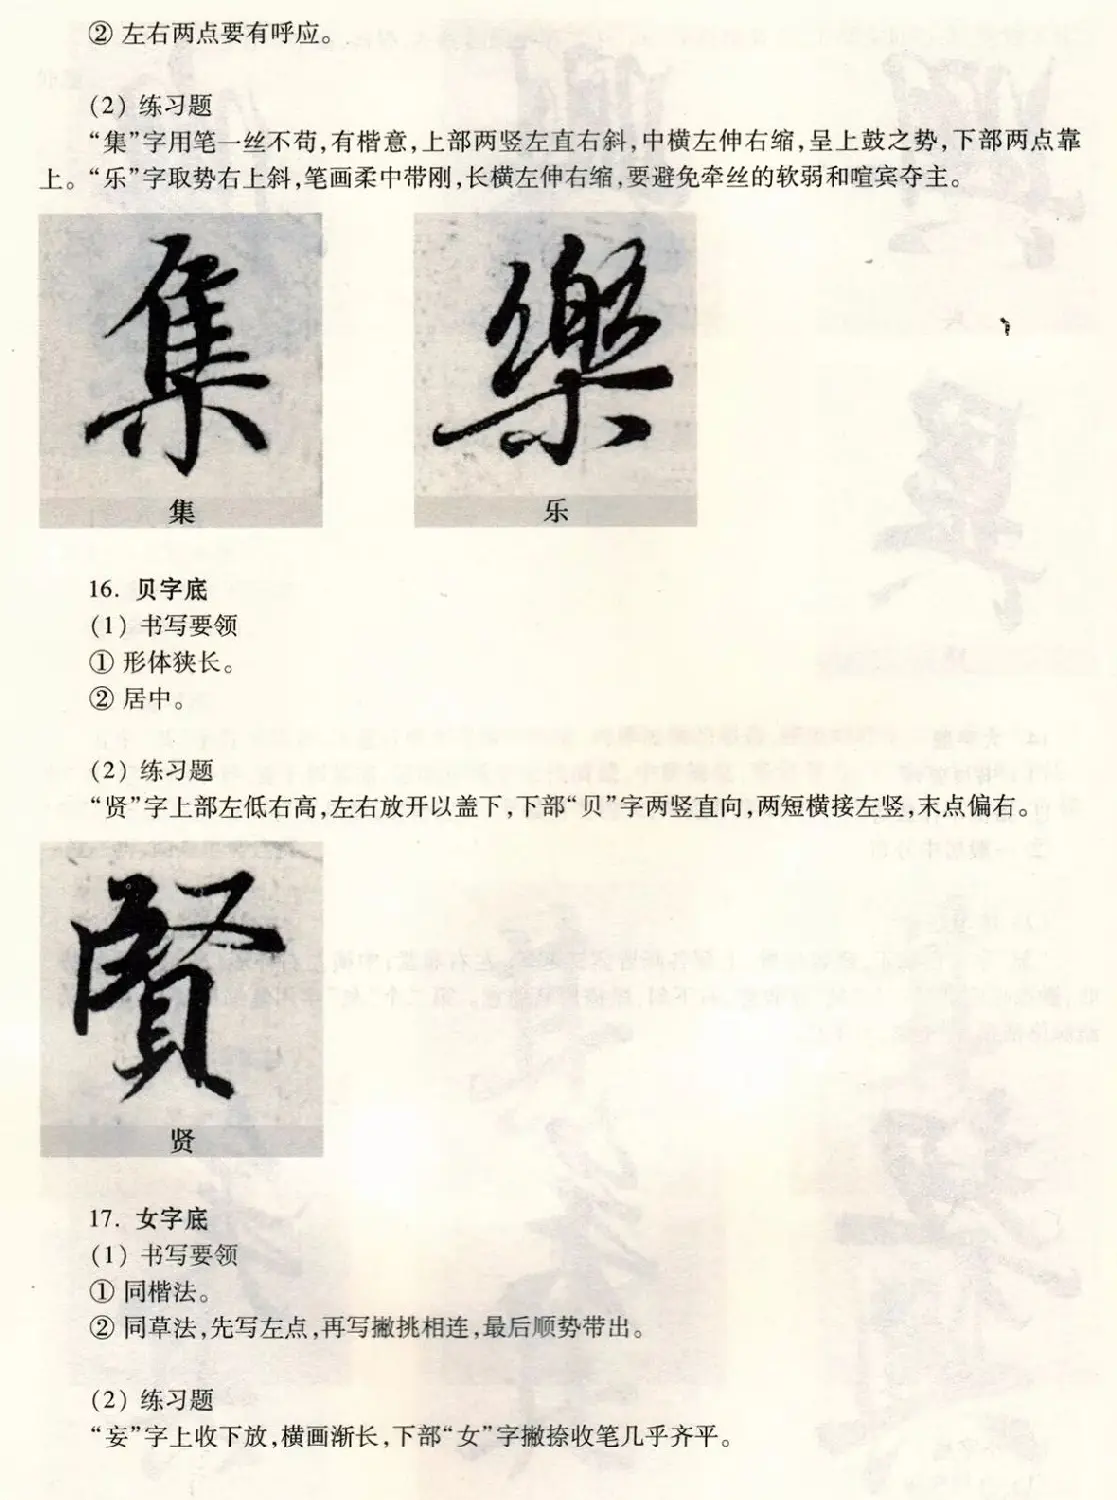 ② 左右两点要有呼应。
(2) 练习题
“集”字用笔一丝不苟,有楷意,上部两竖左直右斜,中横左伸右缩,呈上鼓之势,下部两点靠
上。“乐”字取势右上斜,笔画柔中带刚,长横左伸右缩,要避免牵丝的软弱和喧宾夺主。
集 樂
集 乐
16. 贝字底
(1) 书写要领
① 形体狭长。
② 居中。
(2) 练习题
“贤”字上部左低右高,左右放开以盖下,下部“贝”字两竖直向,两短横接左竖,末点偏右。
賢
贤
17. 女字底
(1) 书写要领
① 同楷法。
② 同草法,先写左点,再写撇挑相连,最后顺势带出。
(2) 练习题
“妄”字上收下放,横画渐长,下部“女”字撇捺收笔几乎齐平。